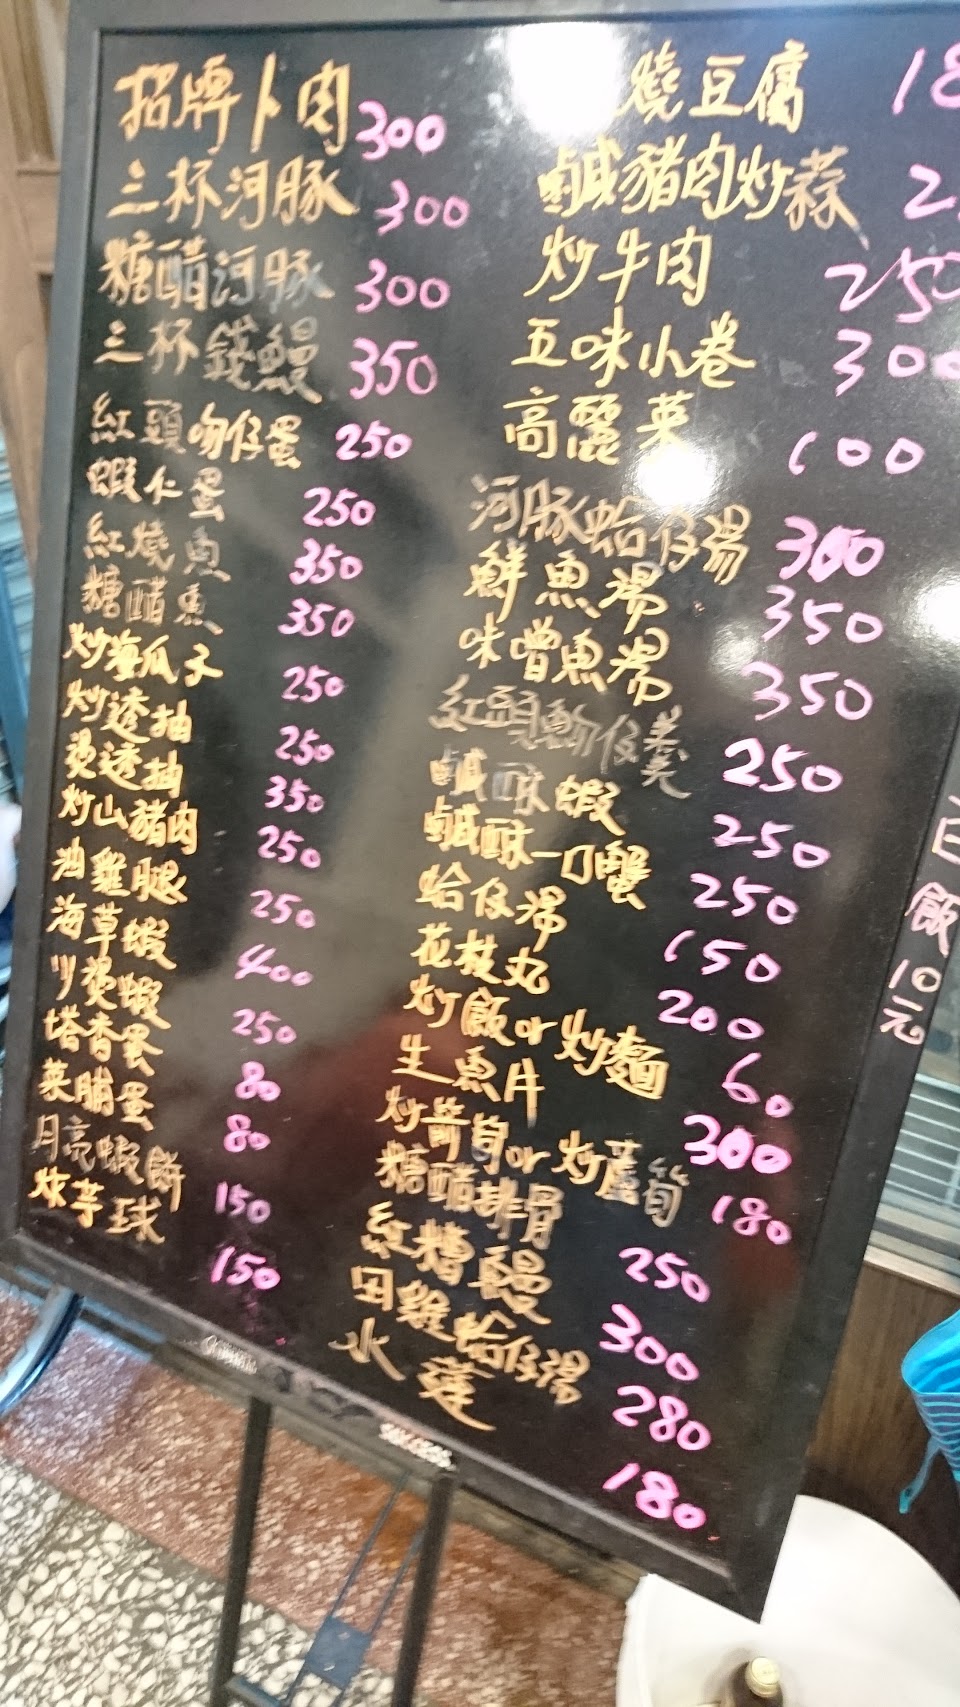 招牌卜肉 300
三杯河豚 300
糖醋河豚 300
三杯錢鰻 350
紅頭吻仔蛋 250
蝦仁蛋 250
紅燒魚 350
糖醋魚 350
炒海瓜子 250
炒透抽 250
燙透抽 350
炒山豬肉 250
油雞腿 250
海草蝦 400
燙蝦 250
塔香蛋 80
菜脯蛋 80
月亮蝦餅 150
炸芋球 150
燒豆腐
鹹豬肉炒蒜
炒牛肉 250
五味小卷 300
高麗菜 100
河豚蛤仔湯 300
鮮魚湯 350
味噌魚湯 350
紅頭吻仔羹 250
鹹酥蝦 250
鹹酥一口蟹 250
蛤仔湯 150
花枝丸 200
炒飯or炒麵 60
生魚片 300
炒箭筍or炒蘆筍 180
糖醋排骨 250
紅糟鰻 300
田雞蛤仔湯 280
水蓮 180
白飯10元
SUCCESS